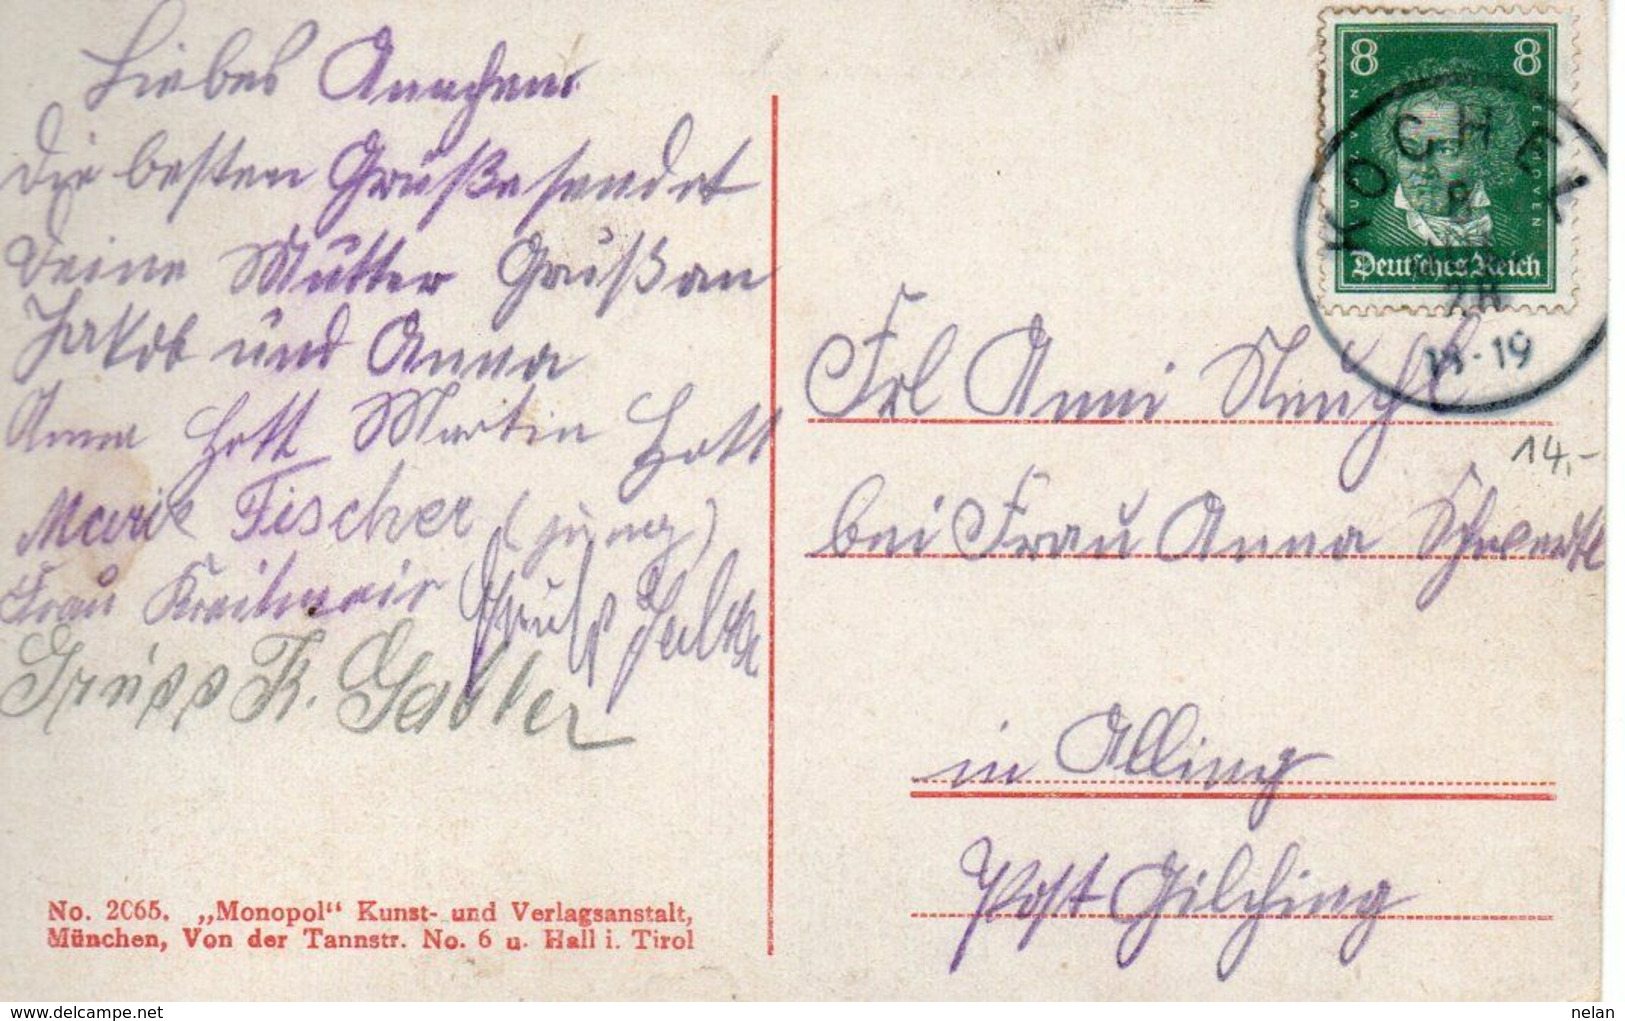 Liebes Annchen
die besten Grüße sendet
Deine Mutter Gruß an
Jakob und Anna
Anna Hott Martin Hott
Marie Fischer (jung)
Frau Kreitmeir Gruß
Grüss K. Gabler
No. 2065. „Monopol“ Kunst- und Verlagsanstalt,
München, Von der Tannstr. No. 6 u. Hall i. Tirol
8 8
Deutsches Reich
KOCHEL
8
28
-19
Frl Anni
14,-
bei Frau Anna
in Alling
Post Gilching
delcampe.net
nelan